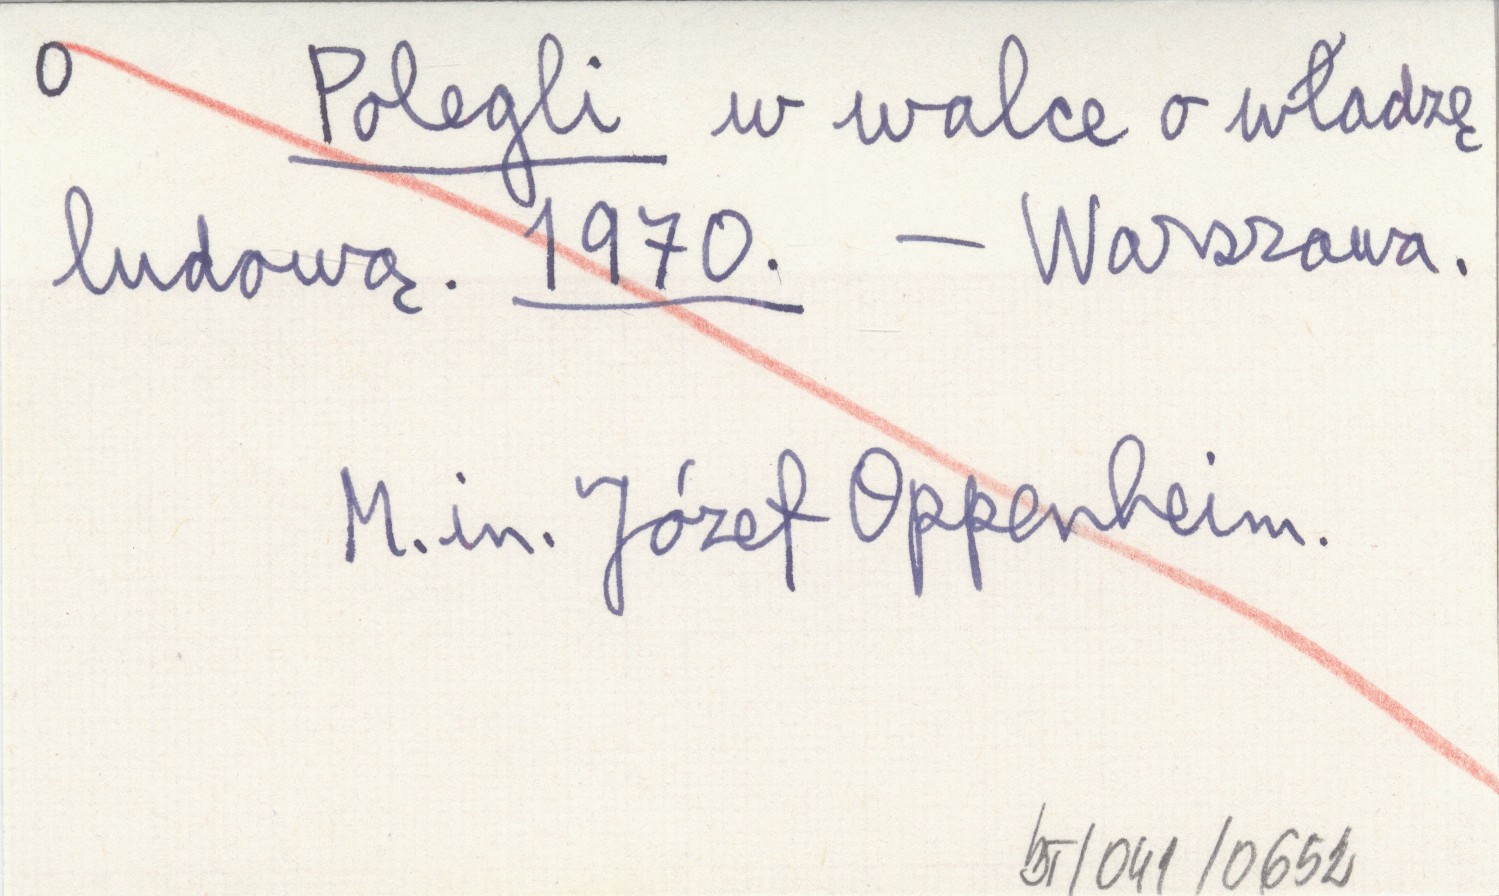 O Polegli w walce o władzę
ludową. 1970. — Warszawa.
M. in. Józef Oppenheim.
/041/0652